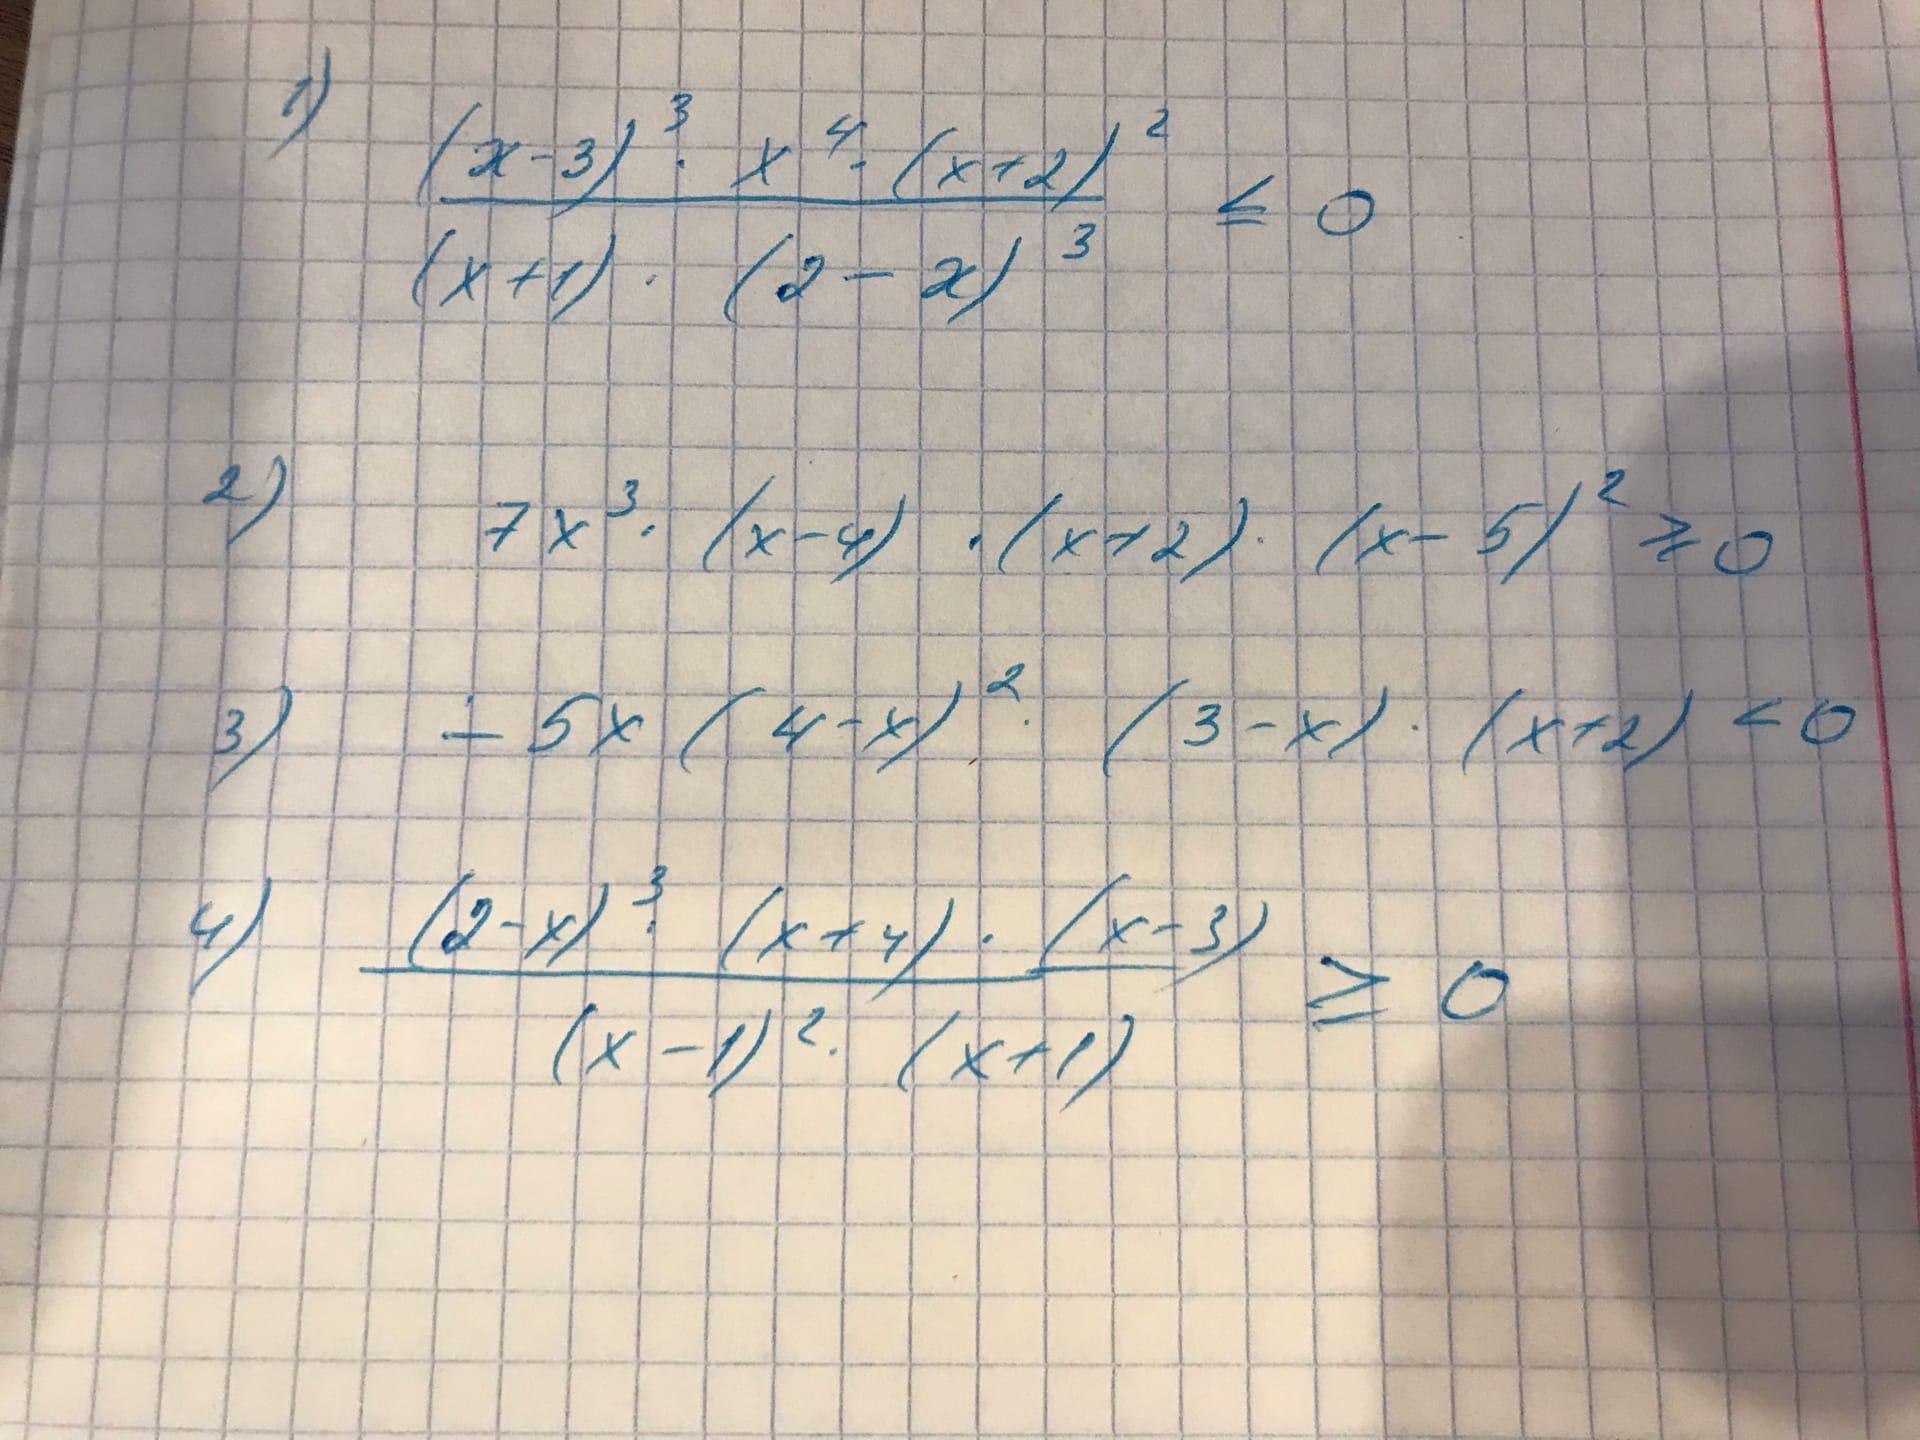 1)
(x-3)³ · x⁴ · (x+2)²
≤ 0
(x+1) · (2-x)³
2) 7x³ · (x-4) · (x+2) · (x-5)² ≥ 0
3) -5x (4-x)² · (3-x) · (x+2) < 0
4) (2-x)³ · (x+4) · (x-3)
≥ 0
(x-1)² · (x+1)